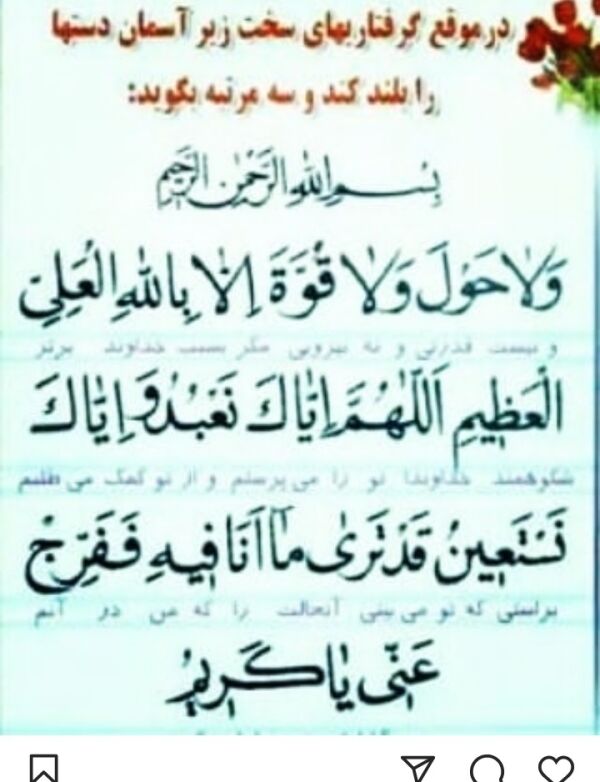 در موقع گرفتاریهای سخت زیر آسمان دستها
را بلند کند و سه مرتبه بگوید:
بِسْمِ اللهِ الرَّحْمٰنِ الرَّحِیمِ
وَلٰا حَوْلَ وَلٰا قُوَّةَ اِلّٰا بِاللهِ الْعَلِیِّ
و نیست قدرتی و نه نیرویی مگر بسبب خداوند برتر
الْعَظِیمِ اَللّٰهُمَّ اِیّٰاكَ نَعْبُدُ وَ اِیّٰاكَ
شکوهمند خداوندا تو را می پرستم و از تو کمک می طلبم
نَسْتَعِینُ قَدْ تَرىٰ مٰا اَنَا فِیهِ فَفَرِّجْ
براستی که تو می بینی آنحالت را که من در آنم
عَنِّی یٰا کَرِیمُ